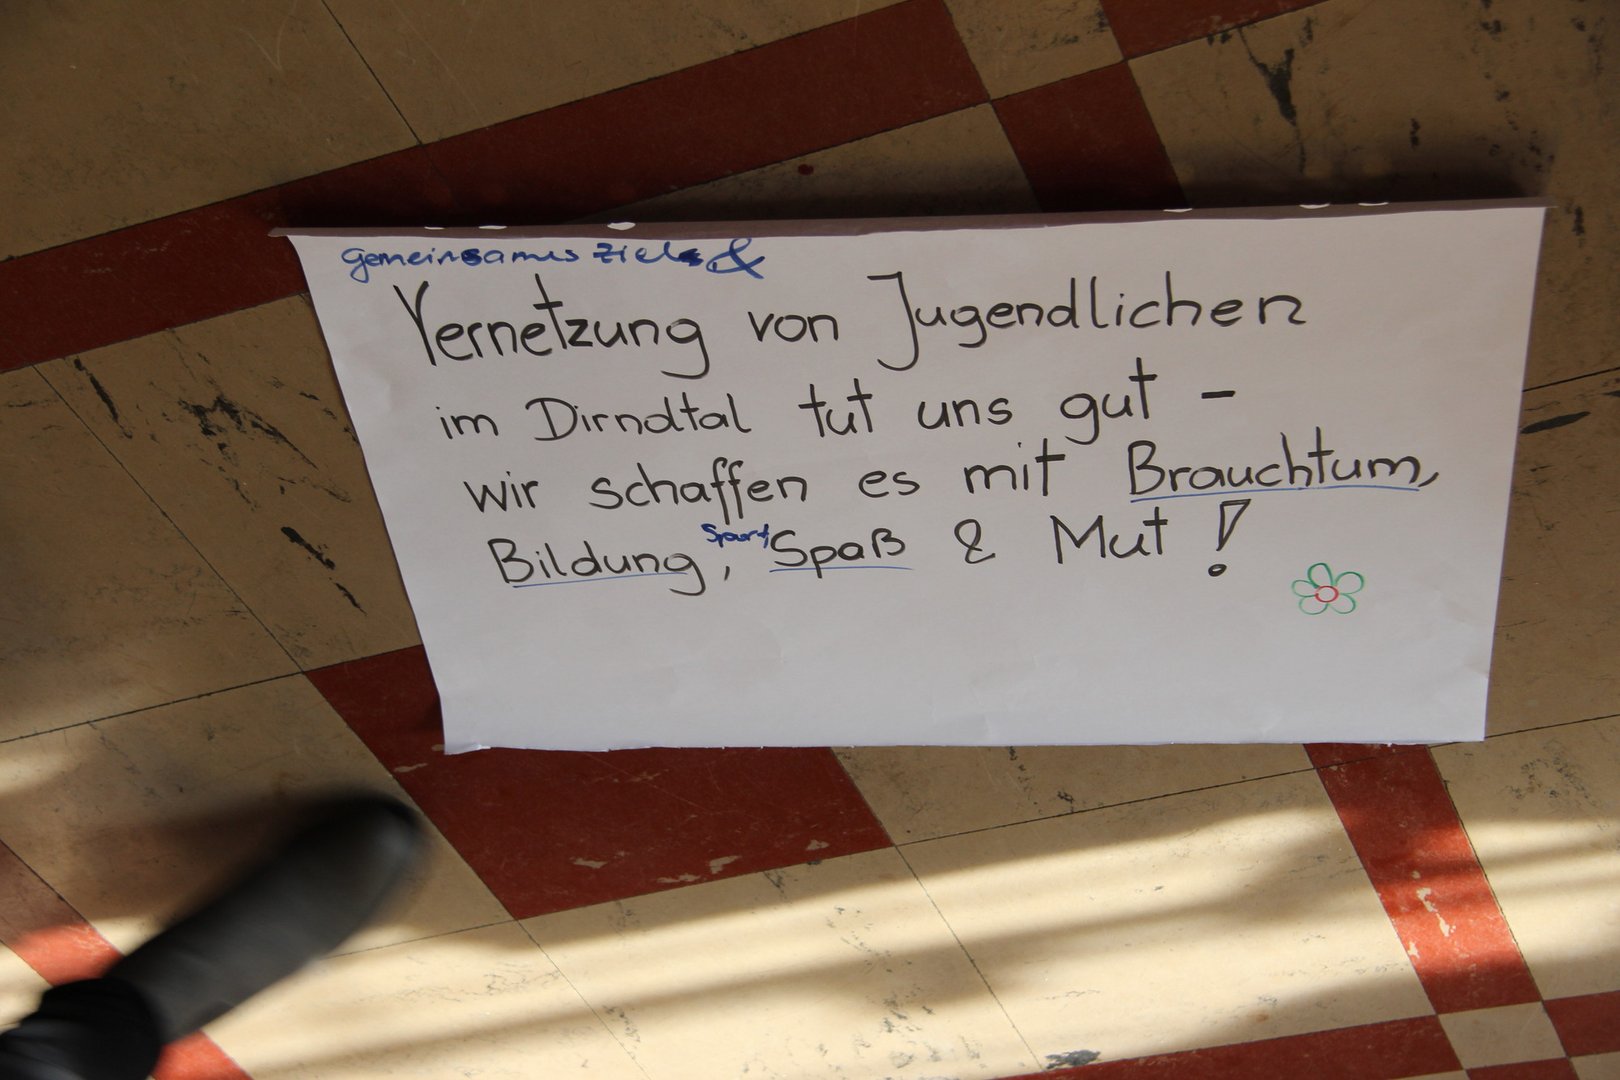 gemeinsames Ziel &
Vernetzung von Jugendlichen
im Dirndltal tut uns gut -
wir schaffen es mit Brauchtum,
Bildung, Sport, Spaß & Mut!